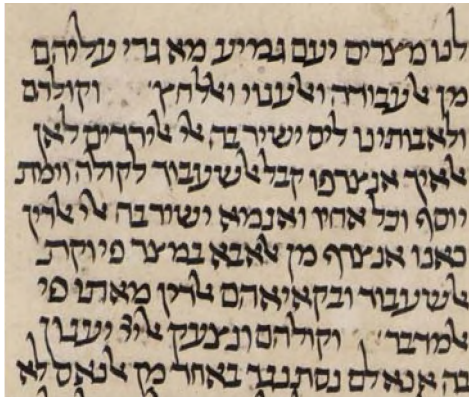 לנו מצרים יעם גמיע מא גרי עליהם
מן אלעבודה ואלענוי ואללחץ וקולהם
ולאבותינו ליס ישיר בה אלי אלדרים לאן
אולאיך אנצרפו קבל אלשעבוד לקולה וימת
יוסף וכל אחיו ואנמא ישיר בה אלי אלדין
כאנו אנצרף מן אלאבא במצר פי וקת
אלשעבוד ובקאיאהם אלדין מאתו פי
אלמדבר וקולהם ונצעק אל ייי יענון
בה אנא לם נסתנגד באחד מן אלנאס ולא